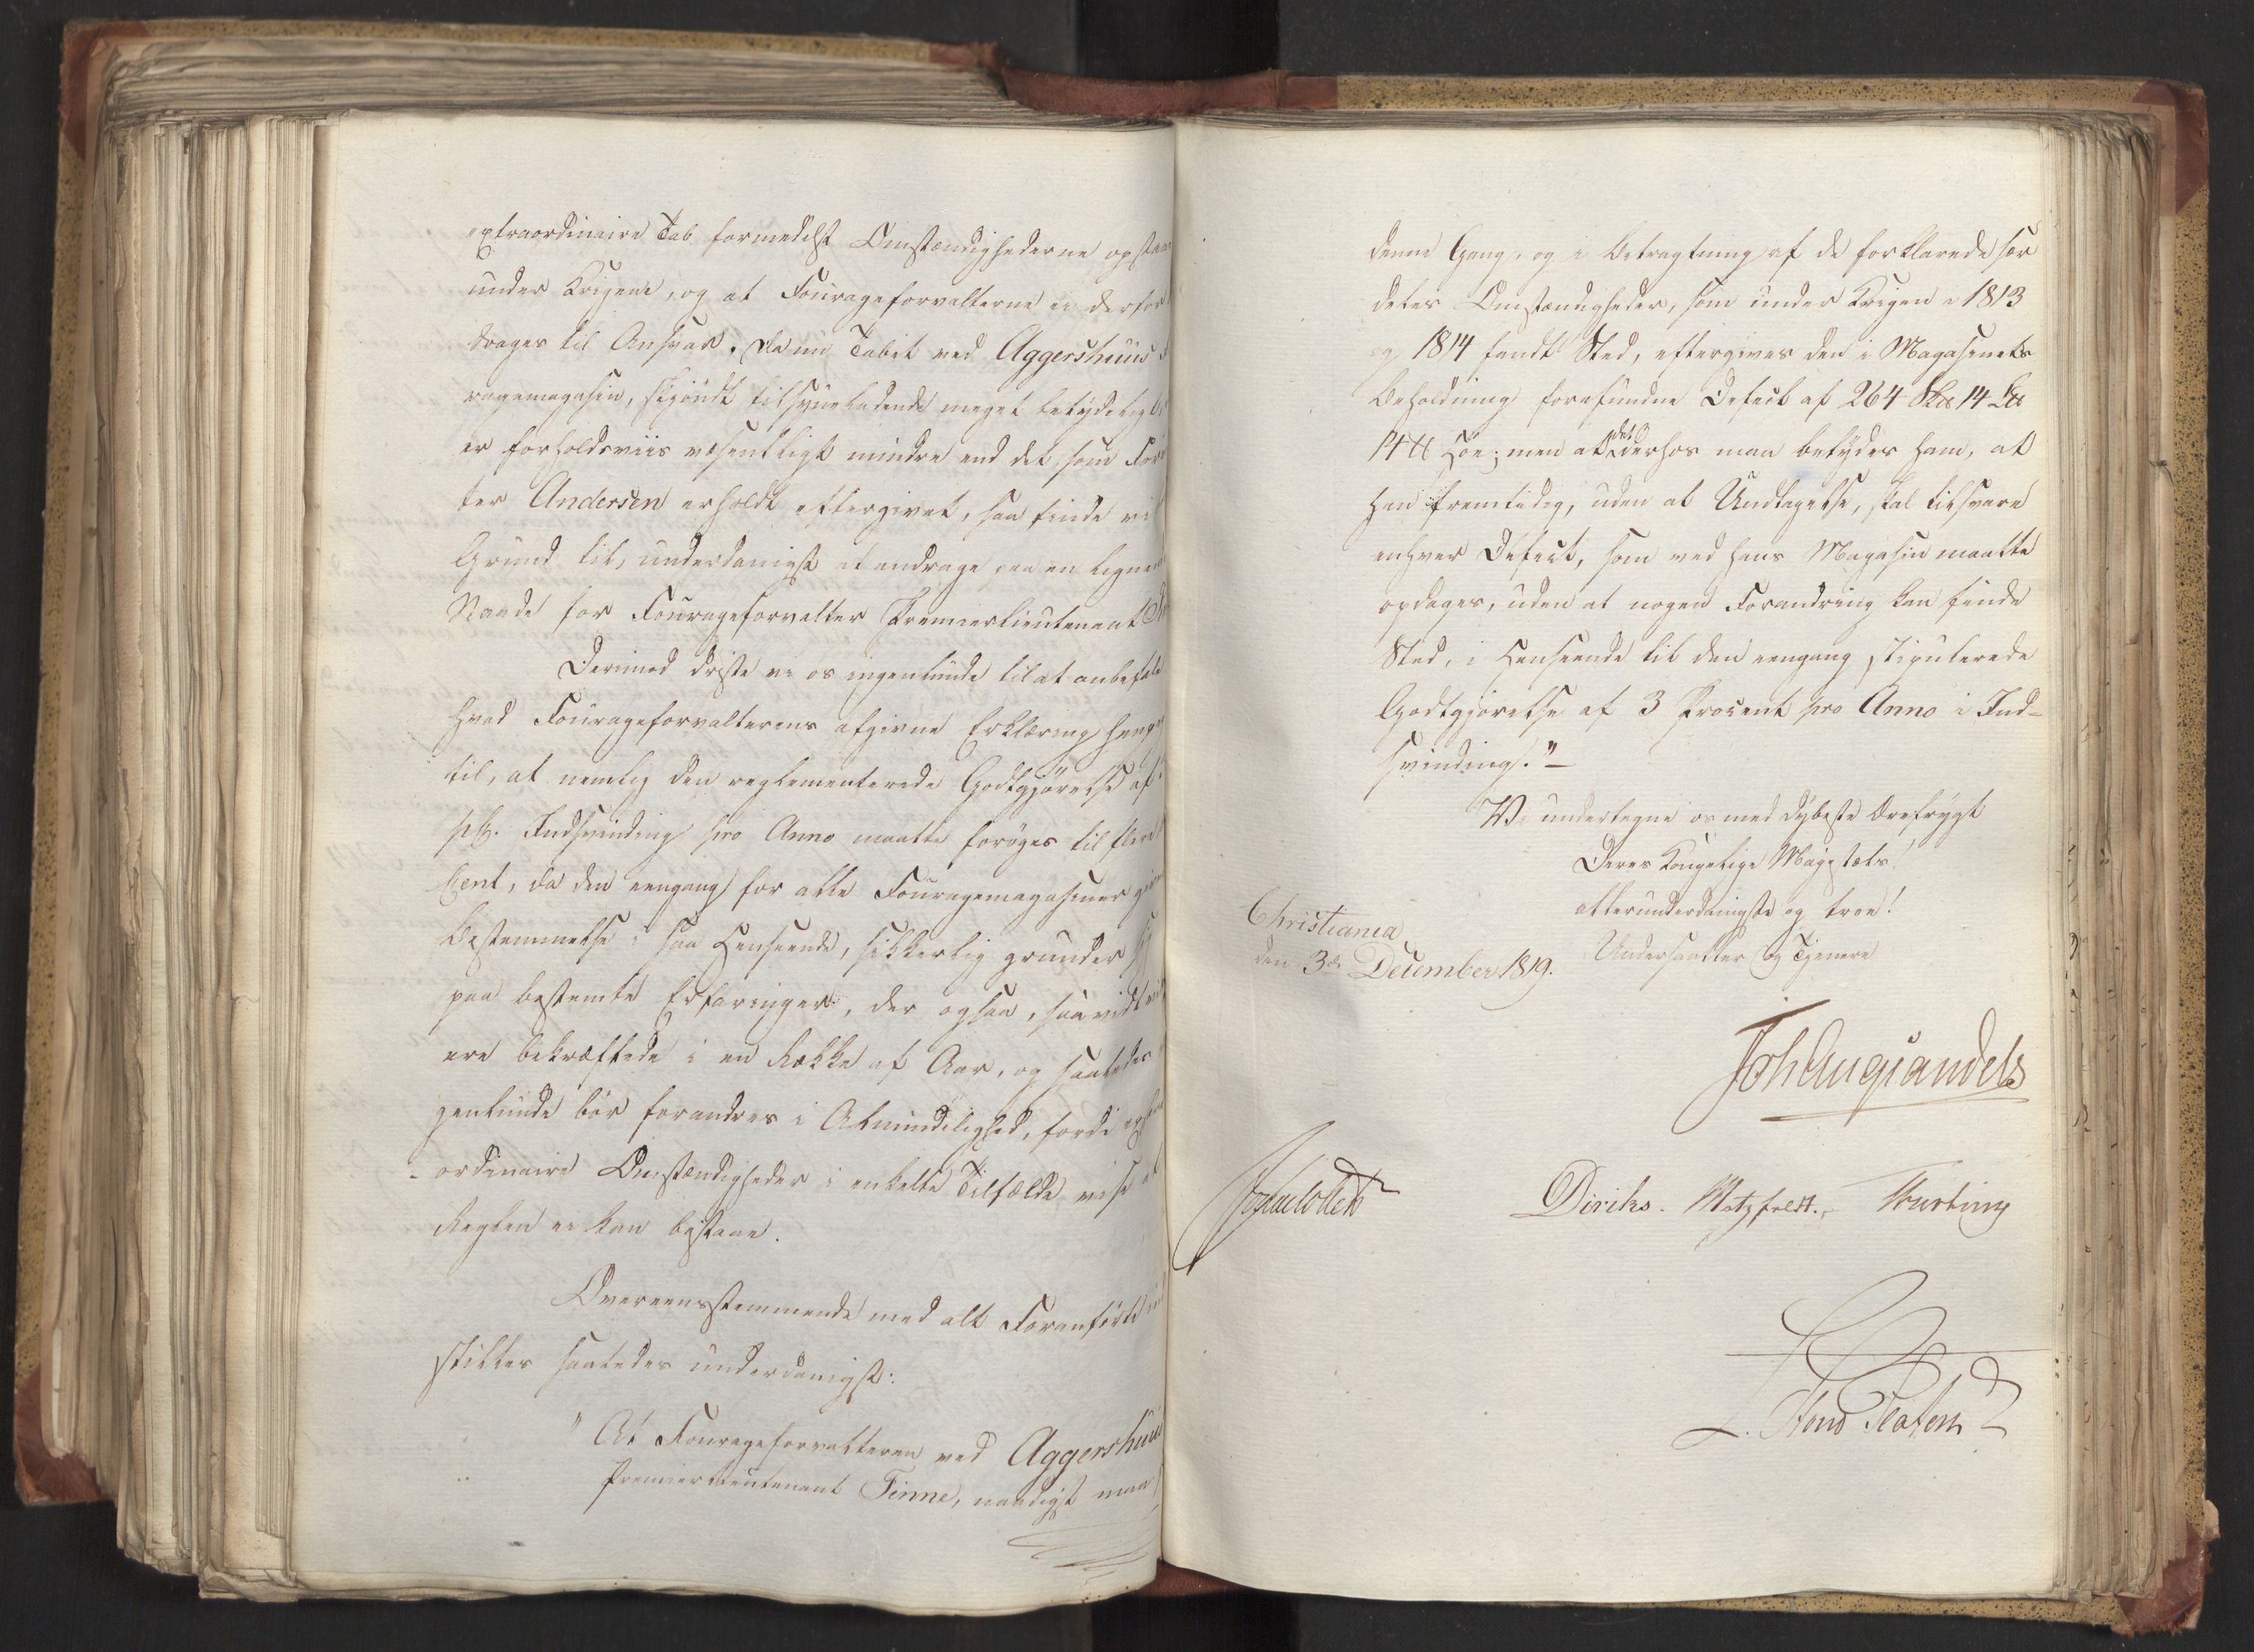 extraordinaire Tab formedelst Omstændighederne opstaaer
under Krigene, og at Fourageforvalterne ei derfor
drages til Ansvar. Da nu Tabet ved Aggershuus
ragemagasin, skjöndt tilsyneladende meget betydeligt
er forholdsviis væsentligt mindre end det, som
ter Andersen erholdt eftergivet, saa finde vi
Grund til, underdanigst at andrage paa en lignende
Naade for Fourageforvalter Premierlieutenant
Derimod driste vi os ingenlunde til at anbefale
hvad Fourageforvalterens afgivne Erklæring
til, at nemlig den reglementerede Godtgjörelse af
pC. Indsvinding pro Anno maatte foröges til flere
Cent, da den eengang for alle Fouragemagasiner
Bestemmelse i saa Henseende, sikkerlig grunder
paa bestemte Erfaringer, der ogsaa, saavidt
ere bekræftede i en Række af Aar, og saaledes
genlunde bör forandres i Almindelighed, fordi
ordinaire Omstændigheder i enkelte Tilfælde vise at
Reglen ei kan bestaae.
Overeensstemmende med alt Foranförte
stilles saaledes underdanigst:
"At Fourageforvalteren ved Aggershuus
Premierlieutenant Finne, naadigst maa
denne Gang, og i Betragtning af de forklarede sær
deles Omstændigheder, som under Krigen i 1813
og 1814 fandt Sted, eftergives den i Magasinets
Beholdning forefundne Defect af 264 Sk℔ 14 L℔
14 ℔ Höe; men at det derhos maa betydes ham, at
han fremtidig, uden al Undtagelse, skal tilsvare
enhver Defect, som ved hans Magasin maatte
opdages, uden at nogen Forandring kan finde
Sted, i Henseende til den eengang stipulerede
Godtgjörelse af 3 Procent pro Anno i Ind-
svinding."
Vi undertegne os med dybeste Ærefrygt
Deres Kongelige Majestæts
allerunderdanigste og troe!
Christiania
Undersaatter og Tjenere
den 3de December 1819.
Joh Aug Sandels
Diriks. Motzfeldt.